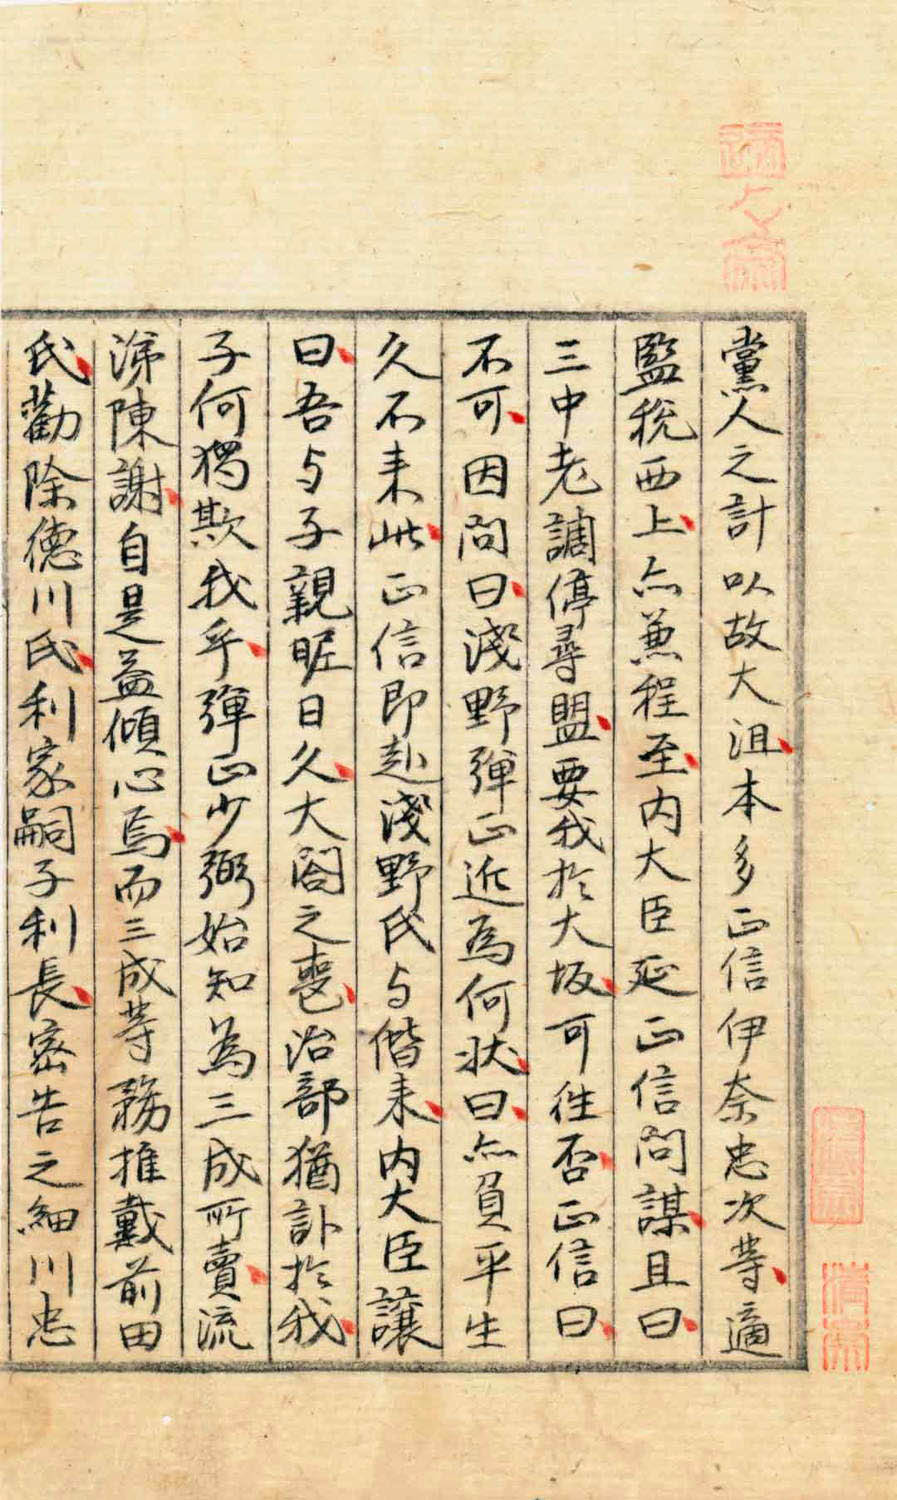 黨人之計以故大沮本多正信伊奈忠次等適
監稅西上亦兼程至內大臣延正信問謀且曰
三中老調停尋盟要我於大坂可往否正信曰
不可因問曰淺野彈正近為何狀曰亦負平生
久不来此正信即赴淺野氏与偕来內大臣讓
曰吾与子親昵日久大閤之喪治部猶訃於我
子何獨欺我乎彈正少弼始知為三成所賣流
涕陳謝自是益傾心焉而三成等務推戴前田
氏勸除德川氏利家嗣子利長密告之細川忠